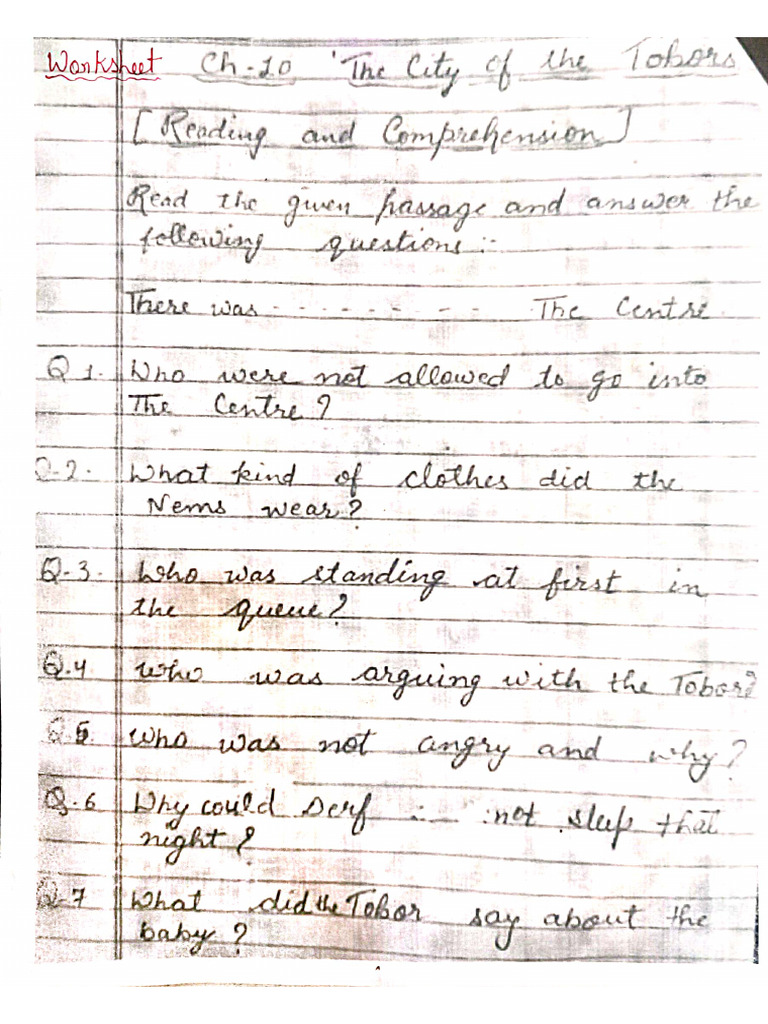 Worksheet Ch-10 'The City of the Tobors
[Reading and Comprehension]
Read the given passage and answer the
following questions:-
There was - - - - - - - - The Centre
Q 1. Who were not allowed to go into
The Centre?
Q.2. What kind of clothes did the
Nems wear?
Q.3. Who was standing at first in
the queue?
Q.4 Who was arguing with the Tobor?
Q.5. Who was not angry and why?
Q.6 Why could Serf not sleep that
night?
Q.7 What did the Tobor say about the
baby?